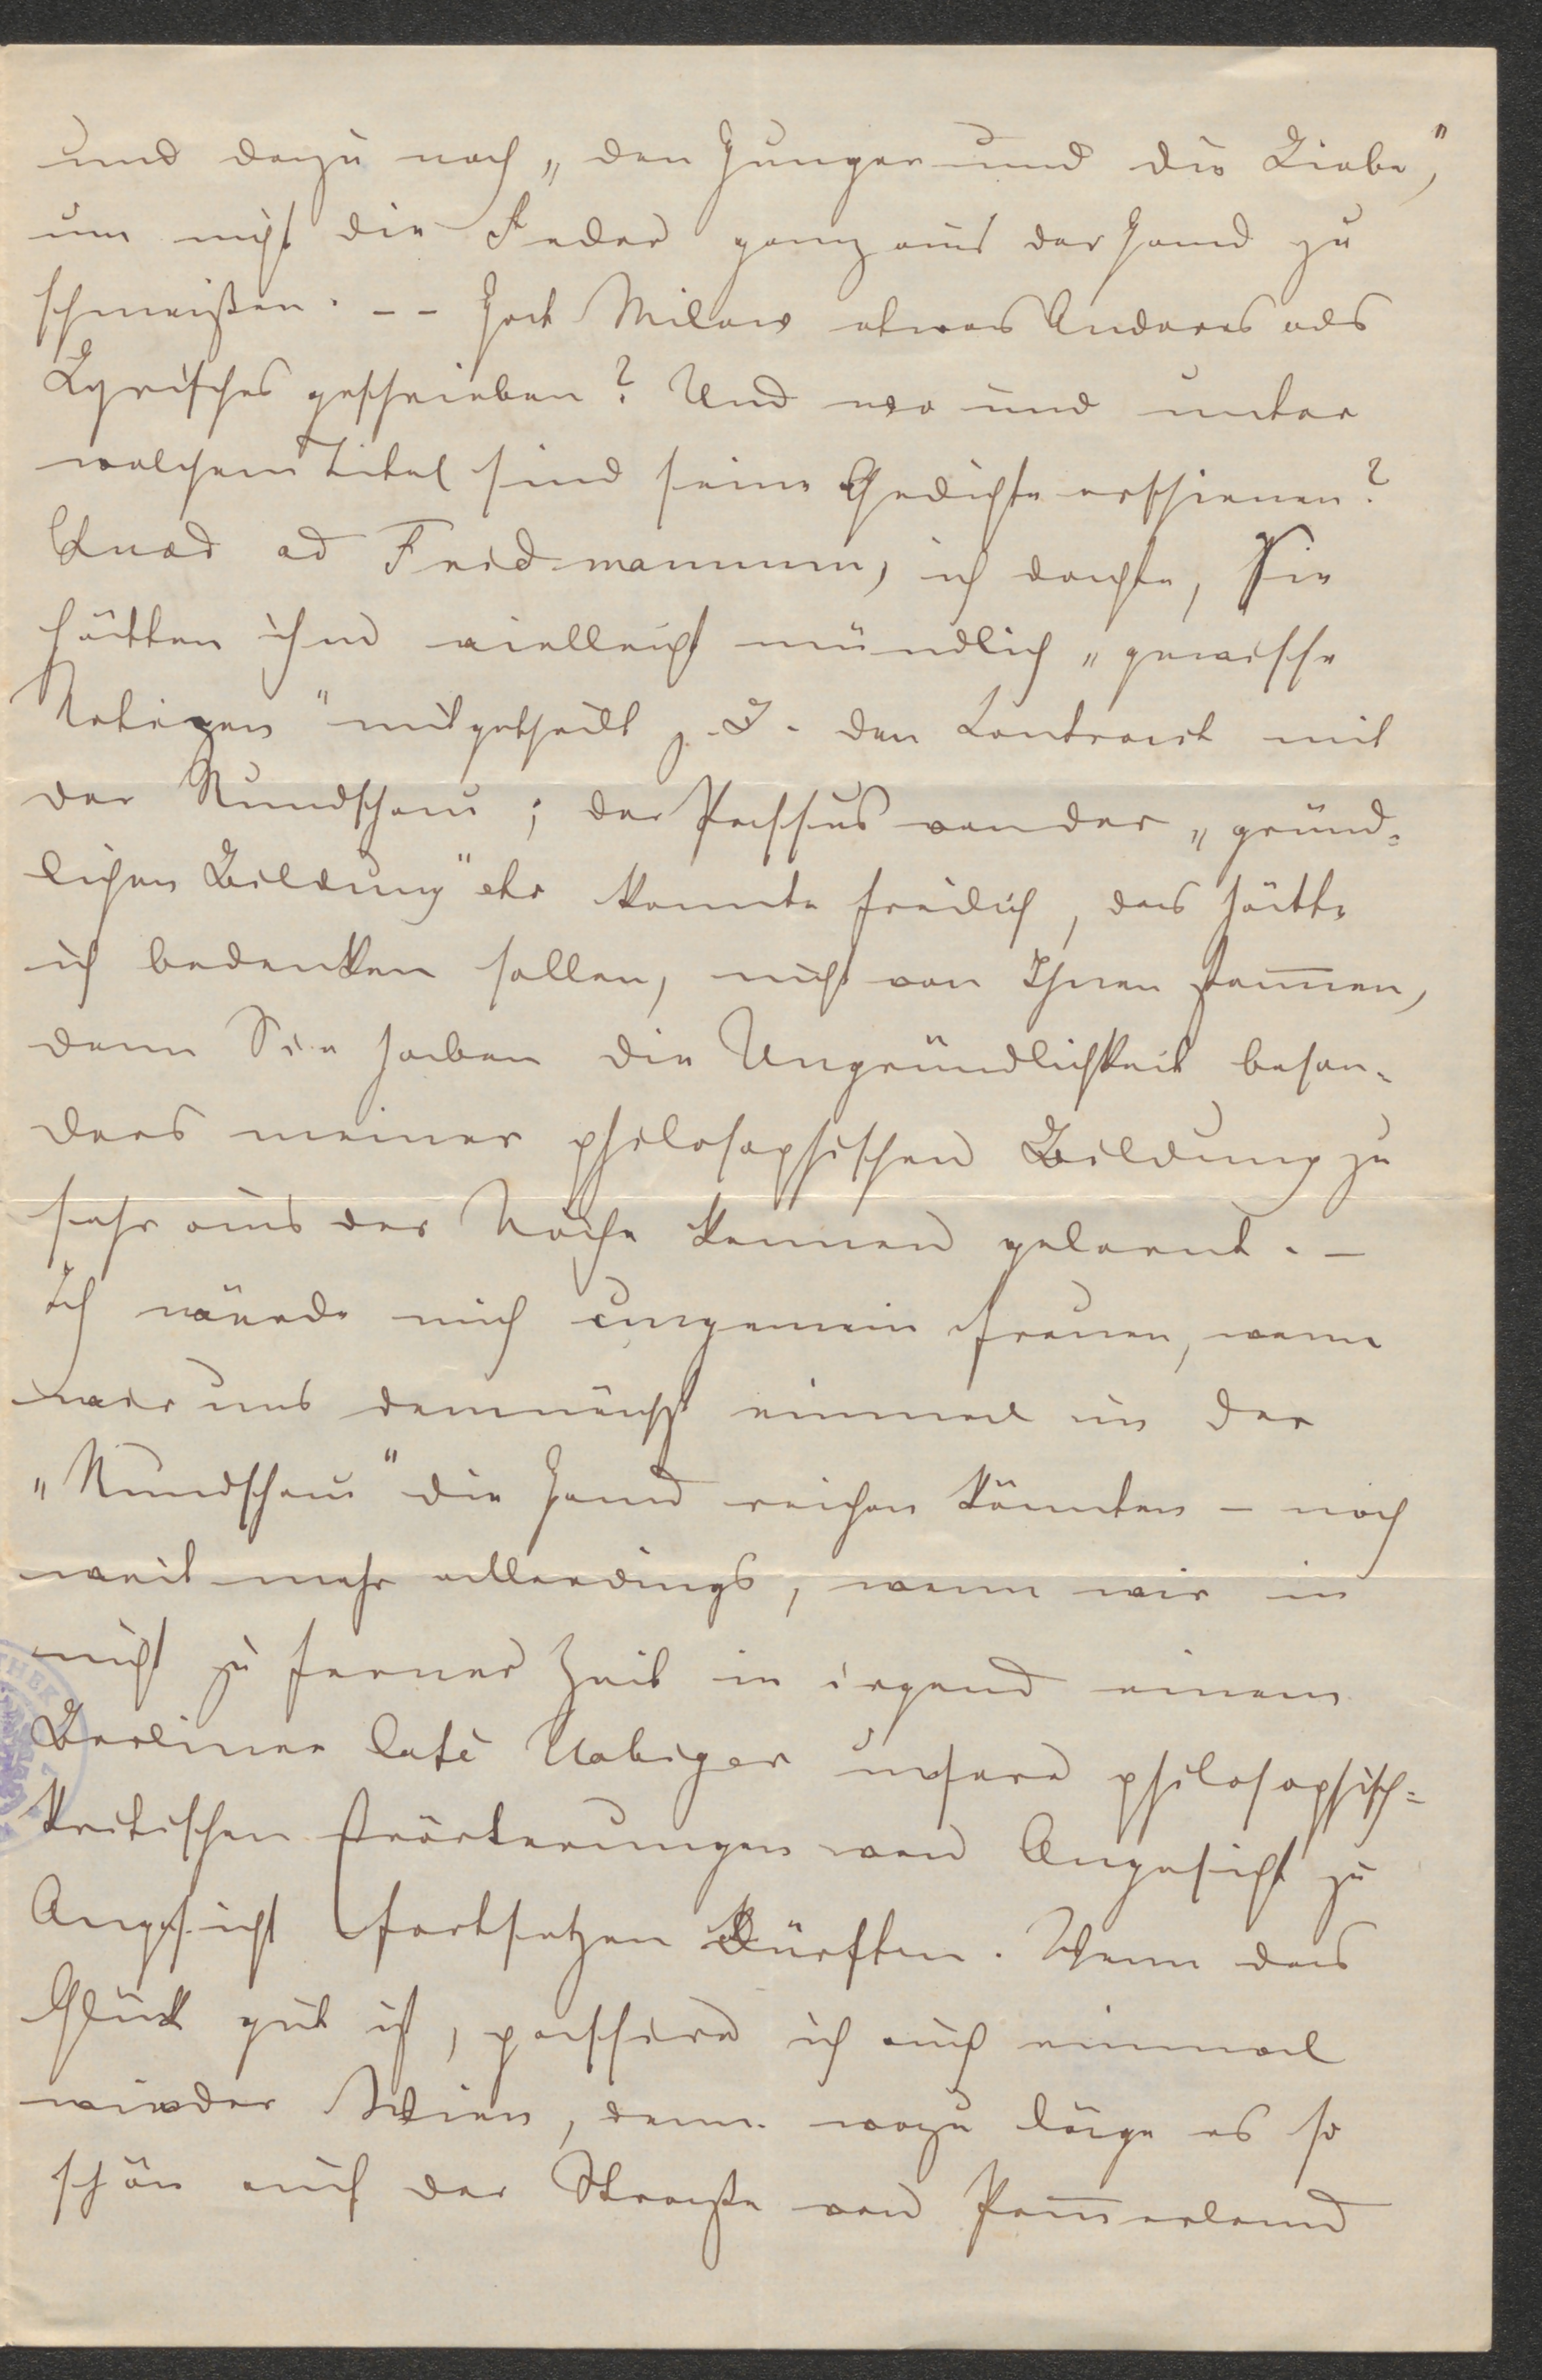 und dazu noch „den Hunger und die Liebe",
um nicht die Feder ganz aus der Hand zu
schmeißen. -- Hat Milow etwas Anderes als
Lyrisches geschrieben? Und wo und unter
welchem Titel sind seine Gedichte erschienen?
Quod ad Friedmannum, ich dachte, Sie
hätten ihm vielleicht mündlich „gewisse
Notizen" mitgetheilt z. B. den Contract mit
der Rundschau; der Passus von der „gründ-
lichen Bildung" etc konnte freilich, das hätte
ich bedenken sollen, nicht von Ihnen stam̅en,
denn Sie haben die Ungründlichkeit beson-
ders meiner philosophischen Bildung zu
sehr aus der Nähe kennen gelernt. –
Ich würde mich ungemein freuen, wenn
wir uns demnächst einmal in der
„Rundschau" die Hand reichen könnten – noch
weit mehr allerdings, wenn wir in
nicht zu ferner Zeit in irgend einem
Berliner Café Uebiger unsere philosophisch-
kritischen Erörterungen von Angesicht zu
Angesicht fortsetzen dürften. Wenn das
Glück gut ist, passire ich auch einmal
wieder Wien, denn wozu läge es so
schön auf der Straße von Pom̅erland